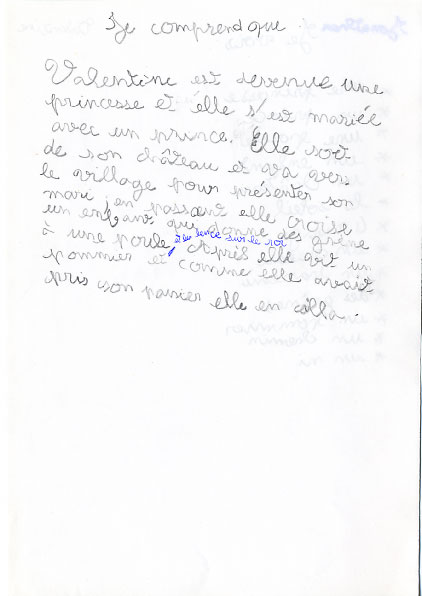 Je comprend que
Valentine est devenue une
princesse et élle s'est mariée
avec un prince. Elle sort
de son château et va vers
le village pour présenter son
mari, en passant elle croise
un enfant qui donne des graine
à une poule et les lence sur le sol
, Après elle voit un
pommier et comme elle avait
pris son panier elle en